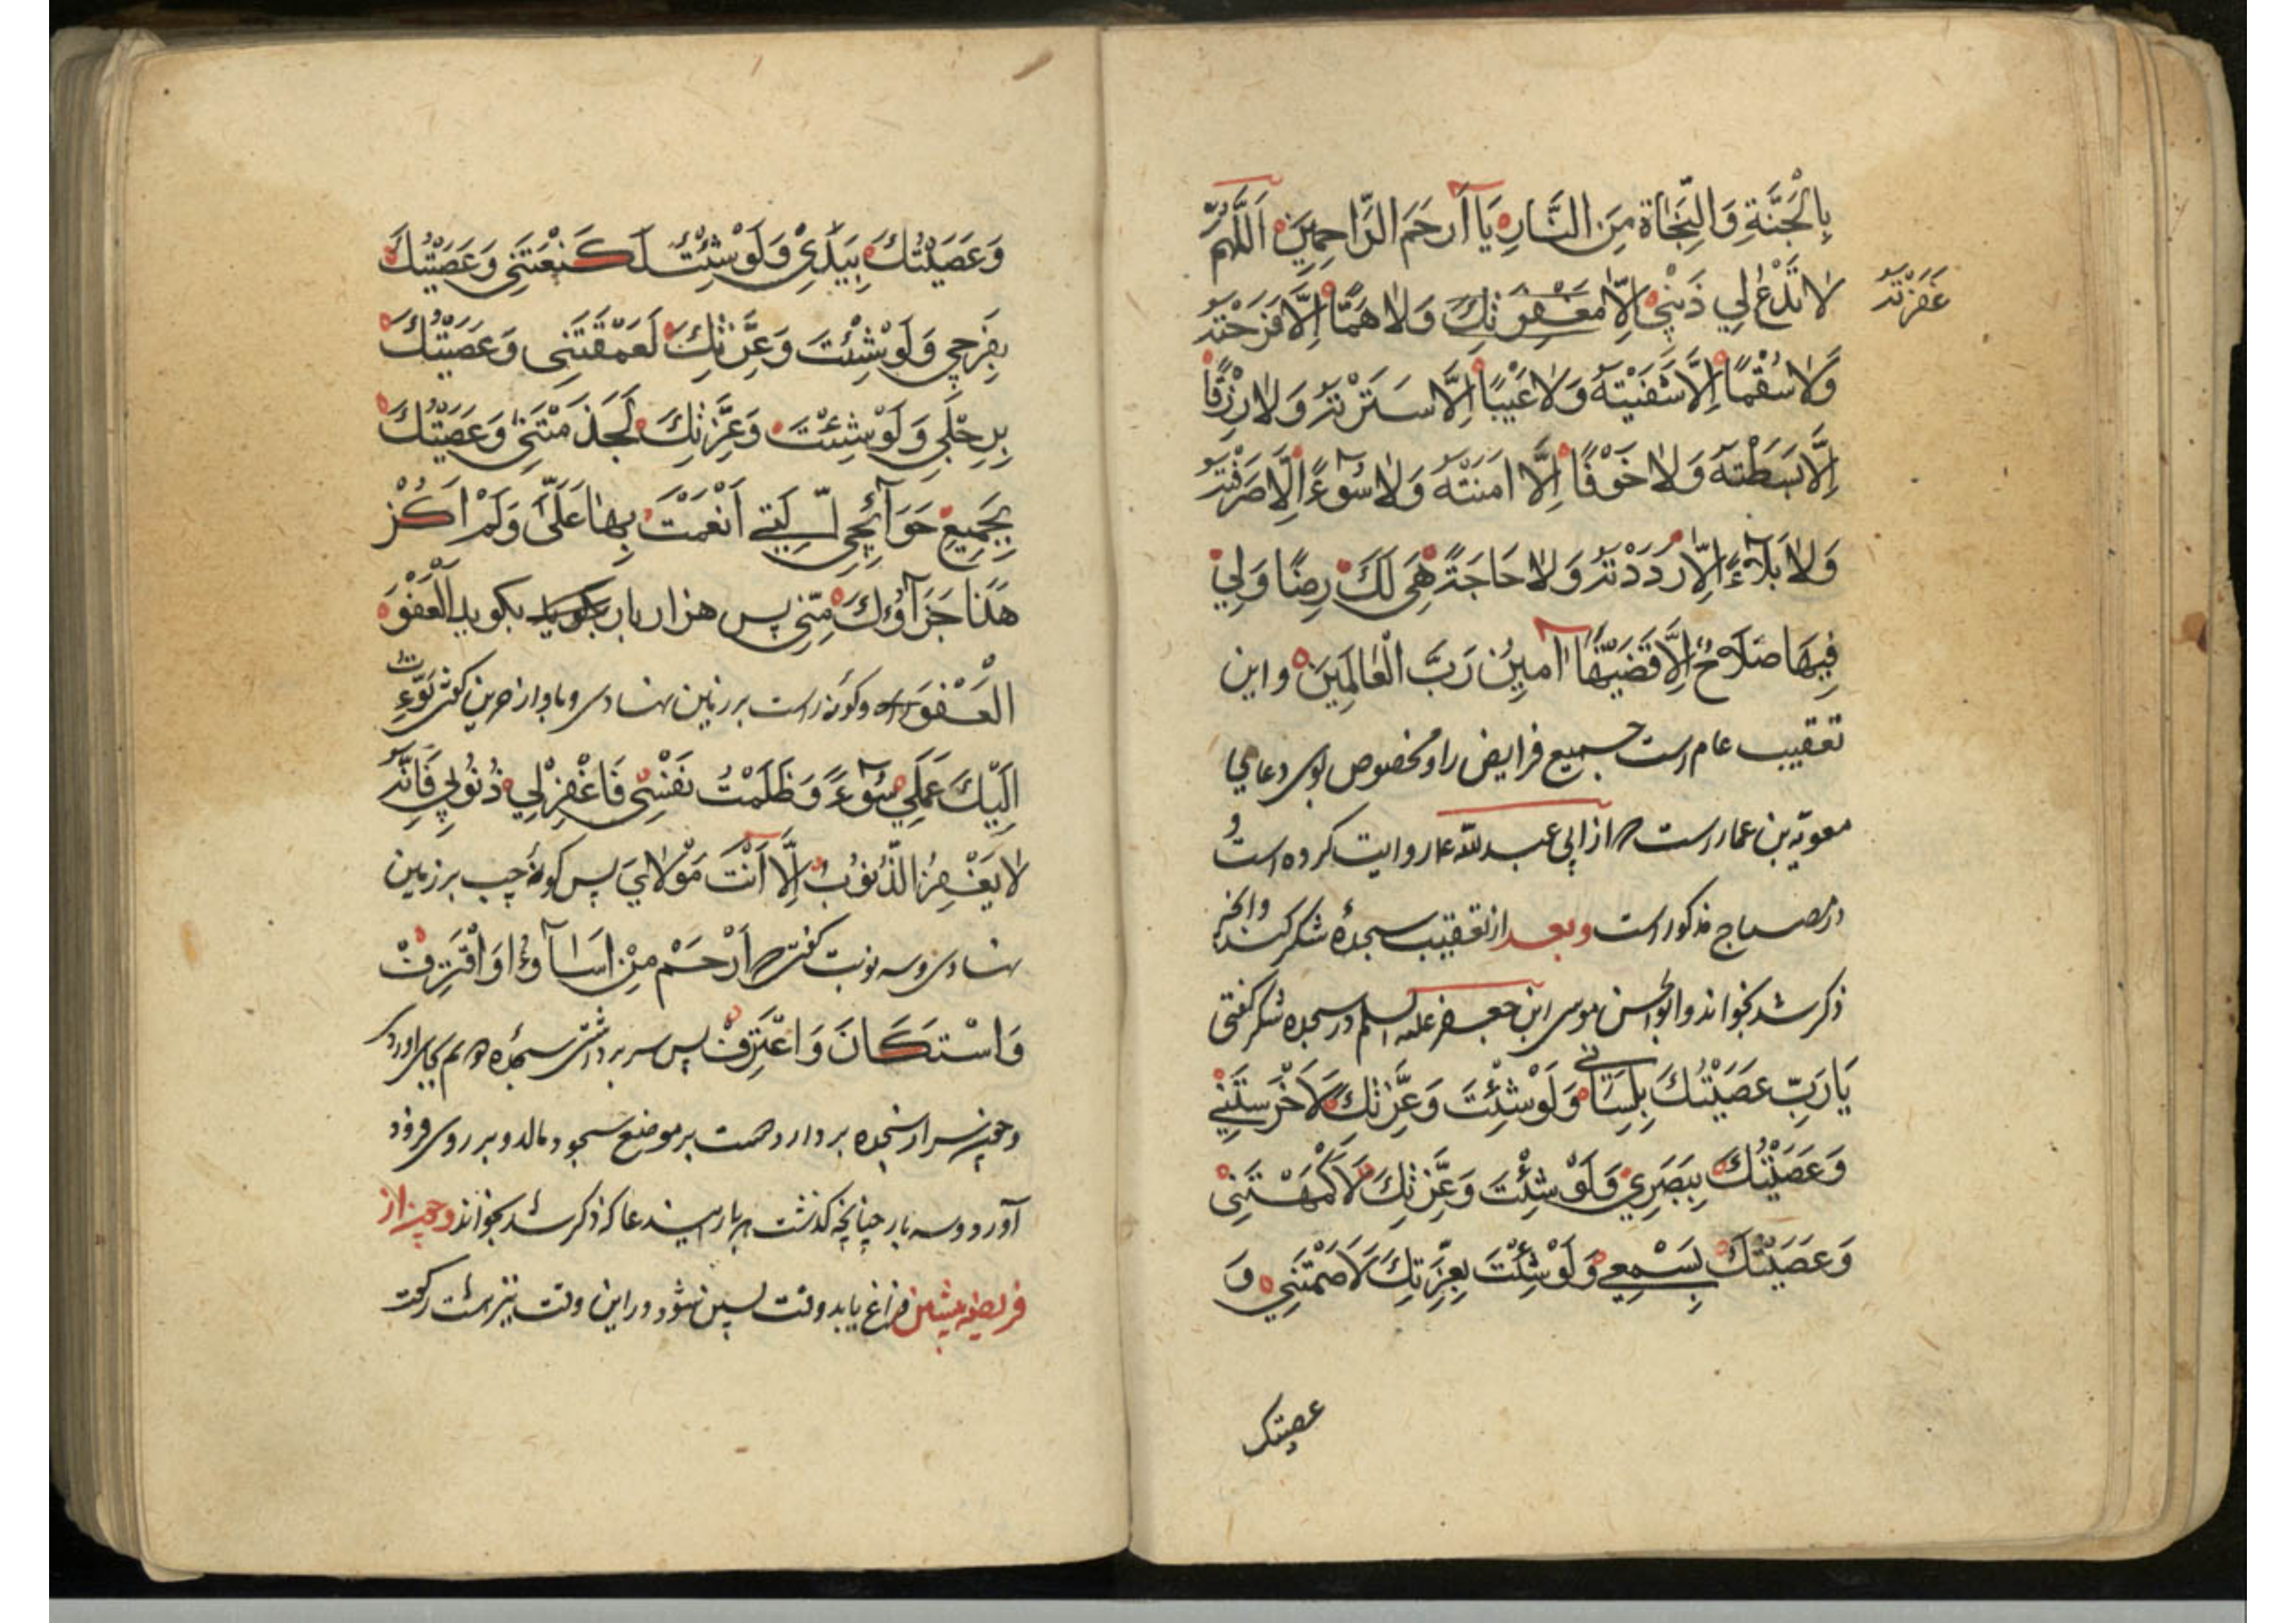 بِالْجَنَّةِ وَالنَّجَاةِ مِنَ النَّارِ يَا أَرْحَمَ الرَّاحِمِينَ اَللّٰهُمَّ
لَا تَدَعْ لِي ذَنْبِي اِلَّا مغفرتك وَلَا هَمًّا اِلَّا فَرَّجْتَهُ
غَفَرْتَهُ
وَلَا سُقْمًا اِلَّا شَفَيْتَهُ وَلَا عَيْبًا اِلَّا سَتَرْتَهُ وَلَا رِزْقًا
اِلَّا بَسَطْتَهُ وَلَا خَوْفًا اِلَّا اٰمَنْتَهُ وَلَا سُوءً اِلَّا صَرَفْتَهُ
وَلَا بَلَاءً اِلَّا رَدَدْتَهُ وَلَا حَاجَةً هِيَ لَكَ رِضًا وَلِي
فِيهَا صَلَاحٌ اِلَّا قَضَيْتَهَا اٰمِينَ رَبَّ الْعَالَمِينَ و این
تعقیب عام است جمیع فرایض را و مخصوص دعای
معویه بن عمار است از ابی عبدالله روایت کرده است و
در مصباح مذکور است وبعد از تعقیب سجدهٔ شکر کند و انچه
ذکر شد بخواند و ابوالحسن موسی ابن جعفر علیه السلم در سجده شکر گفتی
يَا رَبِّ عَصَيْتُكَ بِلِسَانِي وَلَوْ شِئْتَ وَعِزَّتِكَ لَاَخْرَسْتَنِي
وَعَصَيْتُكَ بِبَصَرِي وَلَوْ شِئْتَ وَعِزَّتِكَ لَاَكْمَهْتَنِي
وَعَصَيْتُكَ بِسَمْعِي وَلَوْ شِئْتَ بِعِزَّتِكَ لَاَصْمَمْتَنِي وَ
عصیتک
وَعَصَيْتُكَ بِيَدِي وَلَوْ شِئْتَ لَكَنَعْتَنِي وَعَصَيْتُكَ
بِفَرْجِي وَلَوْ شِئْتَ وَعِزَّتِكَ لَعَقَمْتَنِي وَعَصَيْتُكَ
بِرِجْلِي وَلَوْ شِئْتَ وَعِزَّتِكَ لَجَذَمْتَنِي وَعَصَيْتُكَ
بِجَمِيعِ جَوَارِحِي الَّتِي اَنْعَمْتَ بِهَا عَلَيَّ وَلَمْ اَكُنْ
هٰذَا جَزَاؤُكَ مِنِّي پس هزار بار بکوید بکوید الْعَفْوَ
الْعَفْوَ وکونهٔ راست بر زمین نهادی و باواز حزین گفتی بُؤْتُ
اِلَيْكَ عَمِلْتُ سُوءً وَظَلَمْتُ نَفْسِي فَاغْفِرْ لِي ذُنُوبِي فَاِنَّهُ
لَا يَغْفِرُ الذُّنُوبَ اِلَّا اَنْتَ مَوْلَايَ پس کونهٔ چپ بر زمین
نهادی و سه نوبت گفتی اِرْحَمْ مَنْ اَسَاءَ وَاقْتَرَفَ
وَاسْتَكَانَ وَاعْتَرَفَ پس سر برداشتی سجده دوم بجای اورد
وچون سر از سجده بردارد دست بر موضع سجود مالد و بر روی فرود
آورد وسه بار چنانچه کذشت هر بار دعا که ذکر شد بخواند وچون از
فریضه پیشین فراغ یابد وقت پسین شود و در این وقت نیز هشت رکعت